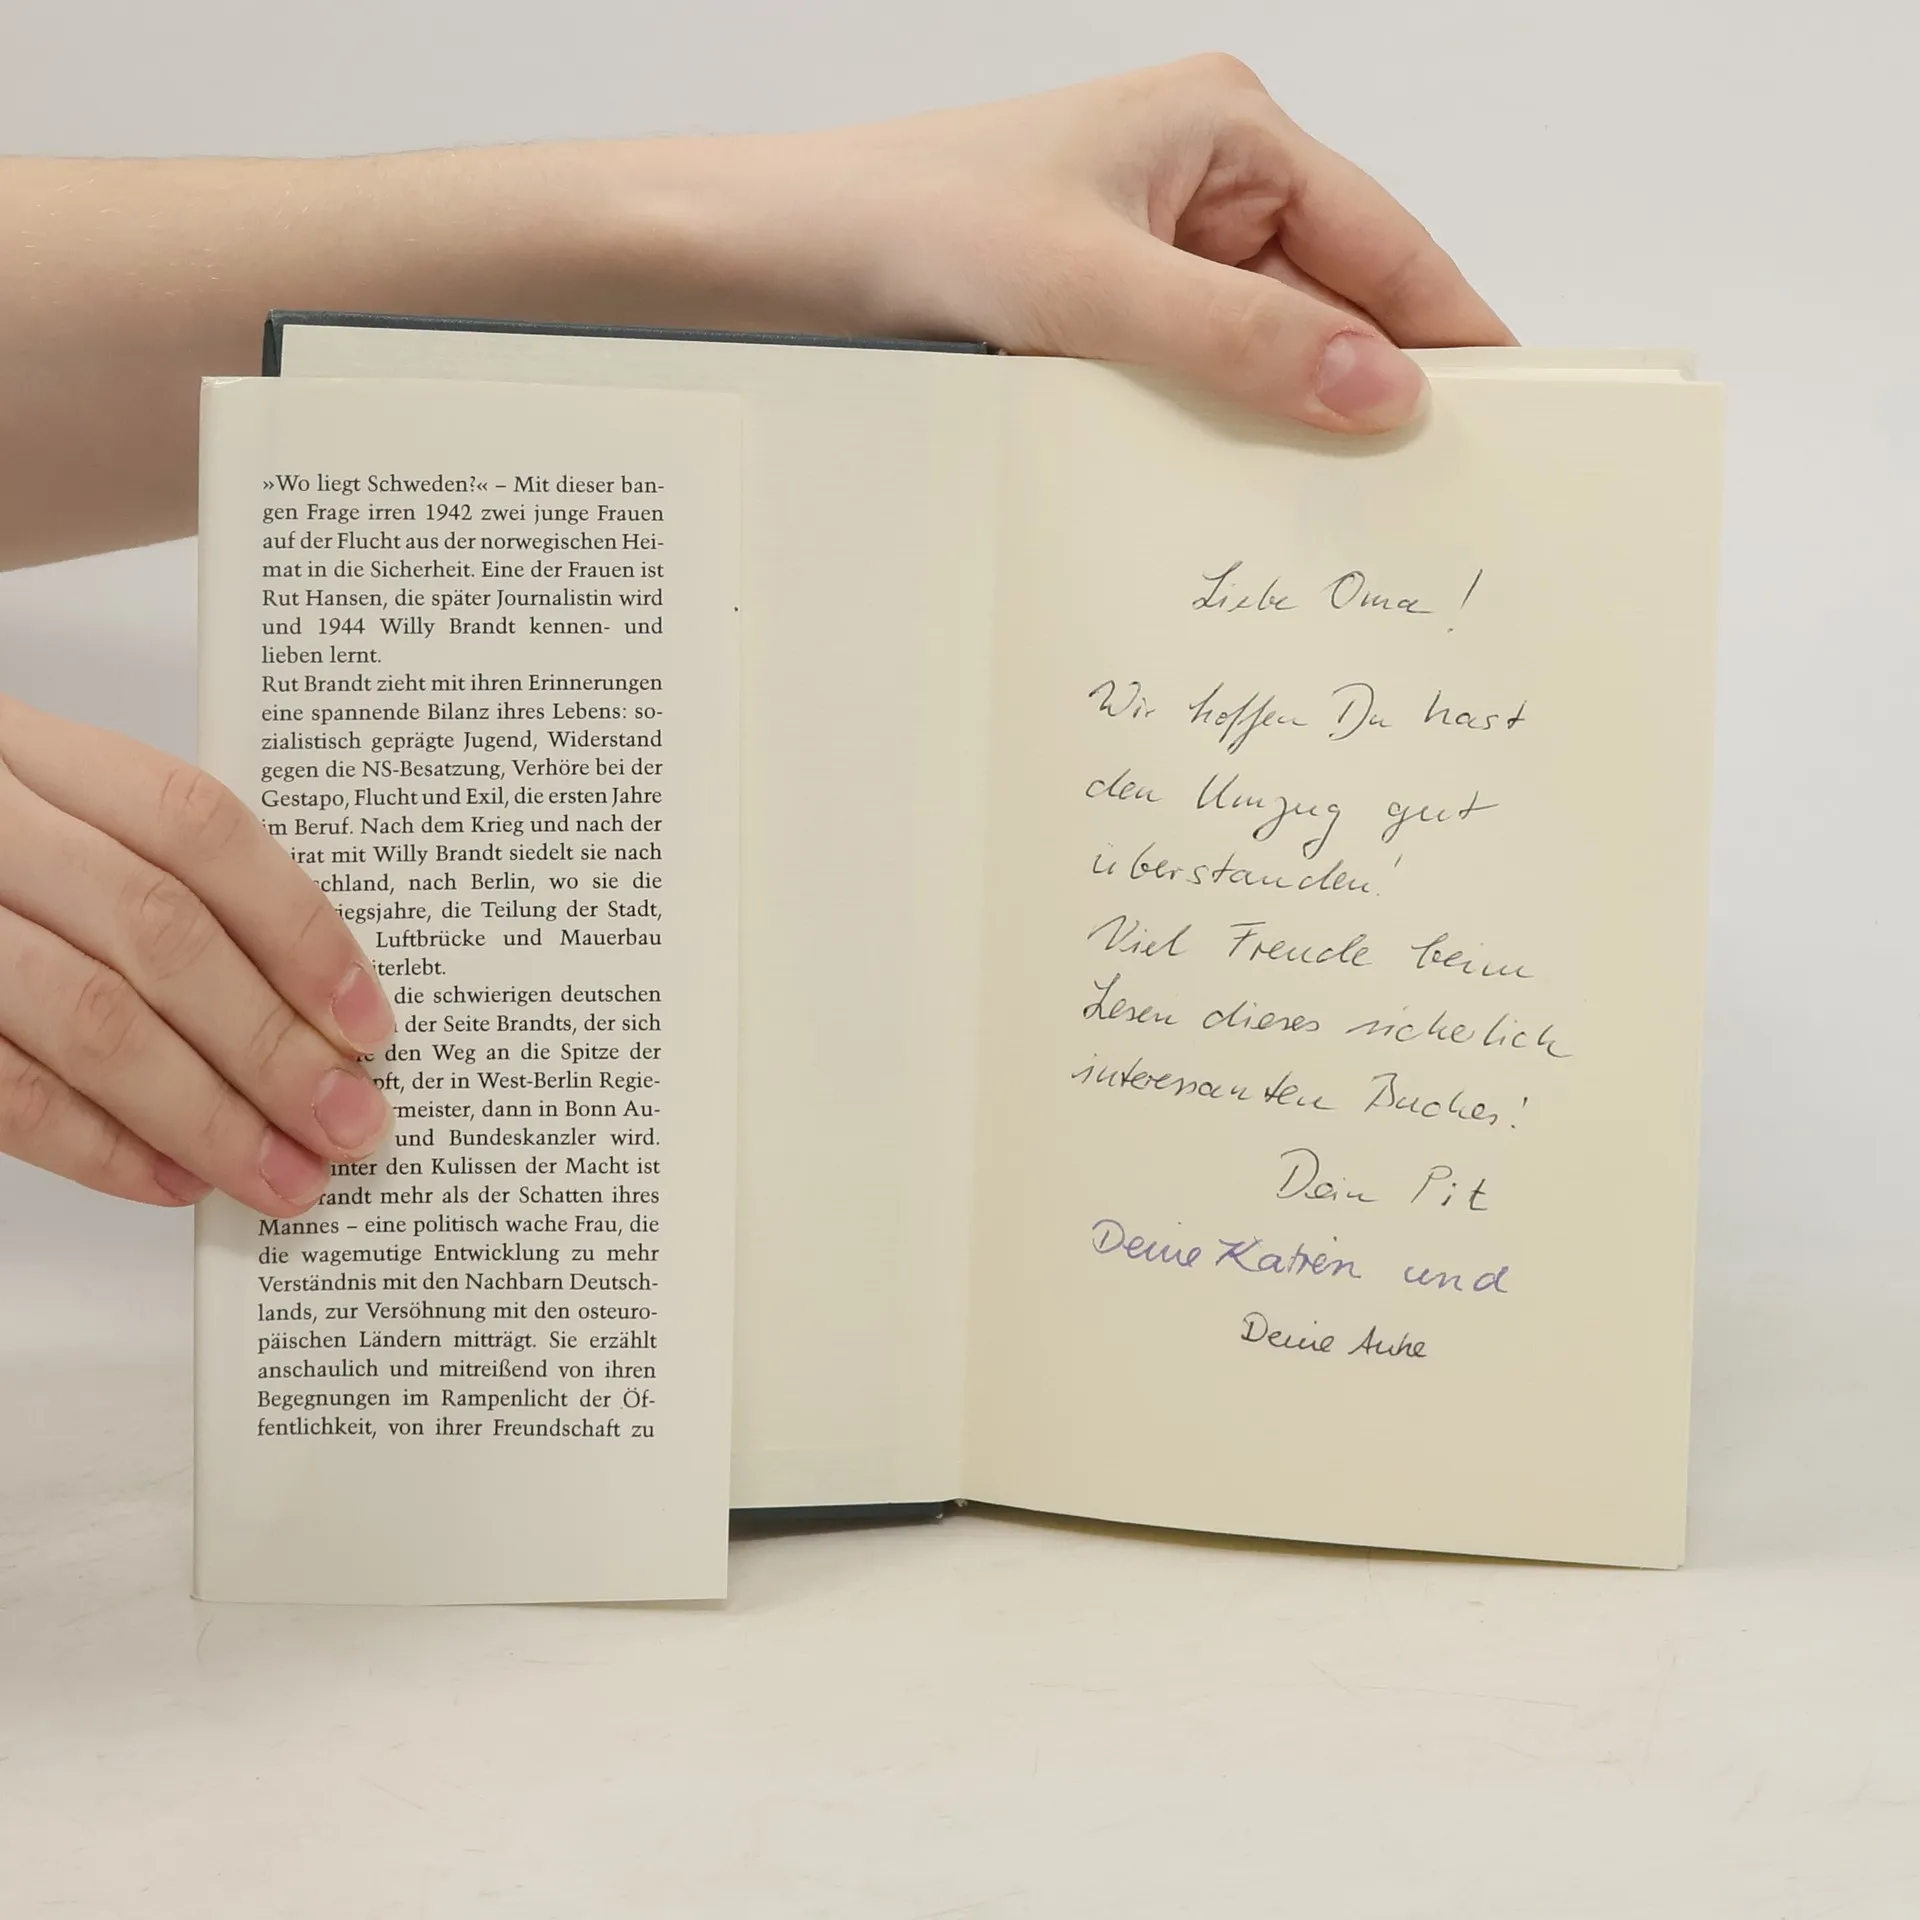 »Wo liegt Schweden?« – Mit dieser ban-
gen Frage irren 1942 zwei junge Frauen
auf der Flucht aus der norwegischen Hei-
mat in die Sicherheit. Eine der Frauen ist
Rut Hansen, die später Journalistin wird
und 1944 Willy Brandt kennen- und
lieben lernt.
Rut Brandt zieht mit ihren Erinnerungen
eine spannende Bilanz ihres Lebens: so-
zialistisch geprägte Jugend, Widerstand
gegen die NS-Besatzung, Verhöre bei der
Gestapo, Flucht und Exil, die ersten Jahre
im Beruf. Nach dem Krieg und nach der
irat mit Willy Brandt siedelt sie nach
schland, nach Berlin, wo sie die
iegsjahre, die Teilung der Stadt,
Luftbrücke und Mauerbau
iterlebt.
die schwierigen deutschen
der Seite Brandts, der sich
den Weg an die Spitze der
pft, der in West-Berlin Regie-
rmeister, dann in Bonn Au-
und Bundeskanzler wird.
inter den Kulissen der Macht ist
randt mehr als der Schatten ihres
Mannes – eine politisch wache Frau, die
die wagemutige Entwicklung zu mehr
Verständnis mit den Nachbarn Deutsch-
lands, zur Versöhnung mit den osteuro-
päischen Ländern mitträgt. Sie erzählt
anschaulich und mitreißend von ihren
Begegnungen im Rampenlicht der Öf-
fentlichkeit, von ihrer Freundschaft zu
Liebe Oma!
Wir hoffen Du hast
den Umzug gut
überstanden!
Viel Freude beim
Lesen dieses sicherlich
interessanten Buches!
Dein Pit
Deine Katrin und
Deine Anke